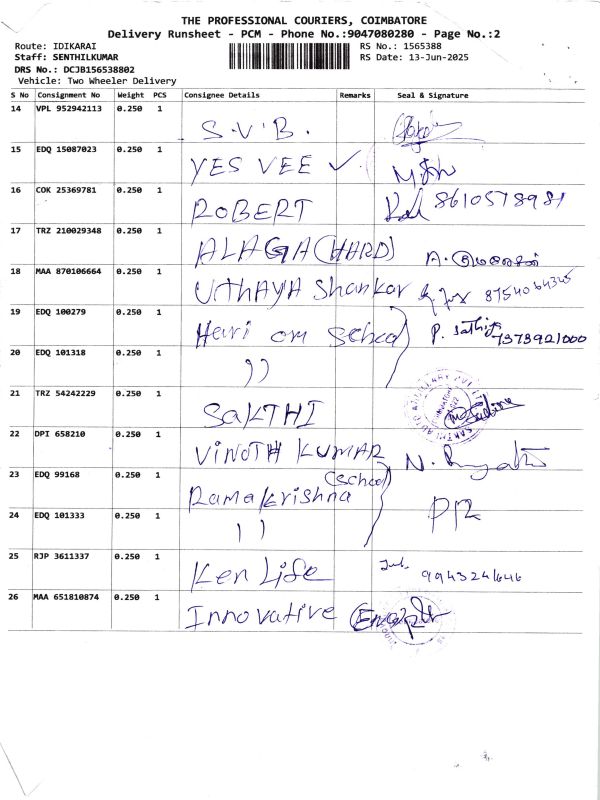 THE PROFESSIONAL COURIERS, COIMBATORE
Delivery Runsheet - PCM - Phone No.:9047080280 - Page No.:2
Route: IDIKARAI
RS No.: 1565388
Staff: SENTHILKUMAR
RS Date: 13-Jun-2025
DRS No.: DCJB156538802
Vehicle: Two Wheeler Delivery
S No Consignment No Weight PCS Consignee Details Remarks Seal & Signature
14 VPL 952942113 0.250 1 S.V.B.
15 EDQ 15087023 0.250 1 YES VEE ✓
16 COK 25369781 0.250 1 ROBERT 8610578981
17 TRZ 210029348 0.250 1 ALAGA (HARD)
18 MAA 870106664 0.250 1 UthAYA Shankar 8754064345
19 EDQ 100279 0.250 1 Hari om School P. Sathiya 7373921000
20 EDQ 101318 0.250 1 ))
21 TRZ 54242229 0.250 1 SAKTHI
22 DPI 658210 0.250 1 VINOTH KUMAR
23 EDQ 99168 0.250 1 Ramakrishna (School)
24 EDQ 101333 0.250 1 ))
25 RJP 3611337 0.250 1 Ken Life 9943241646
26 MAA 651810874 0.250 1 Innovative